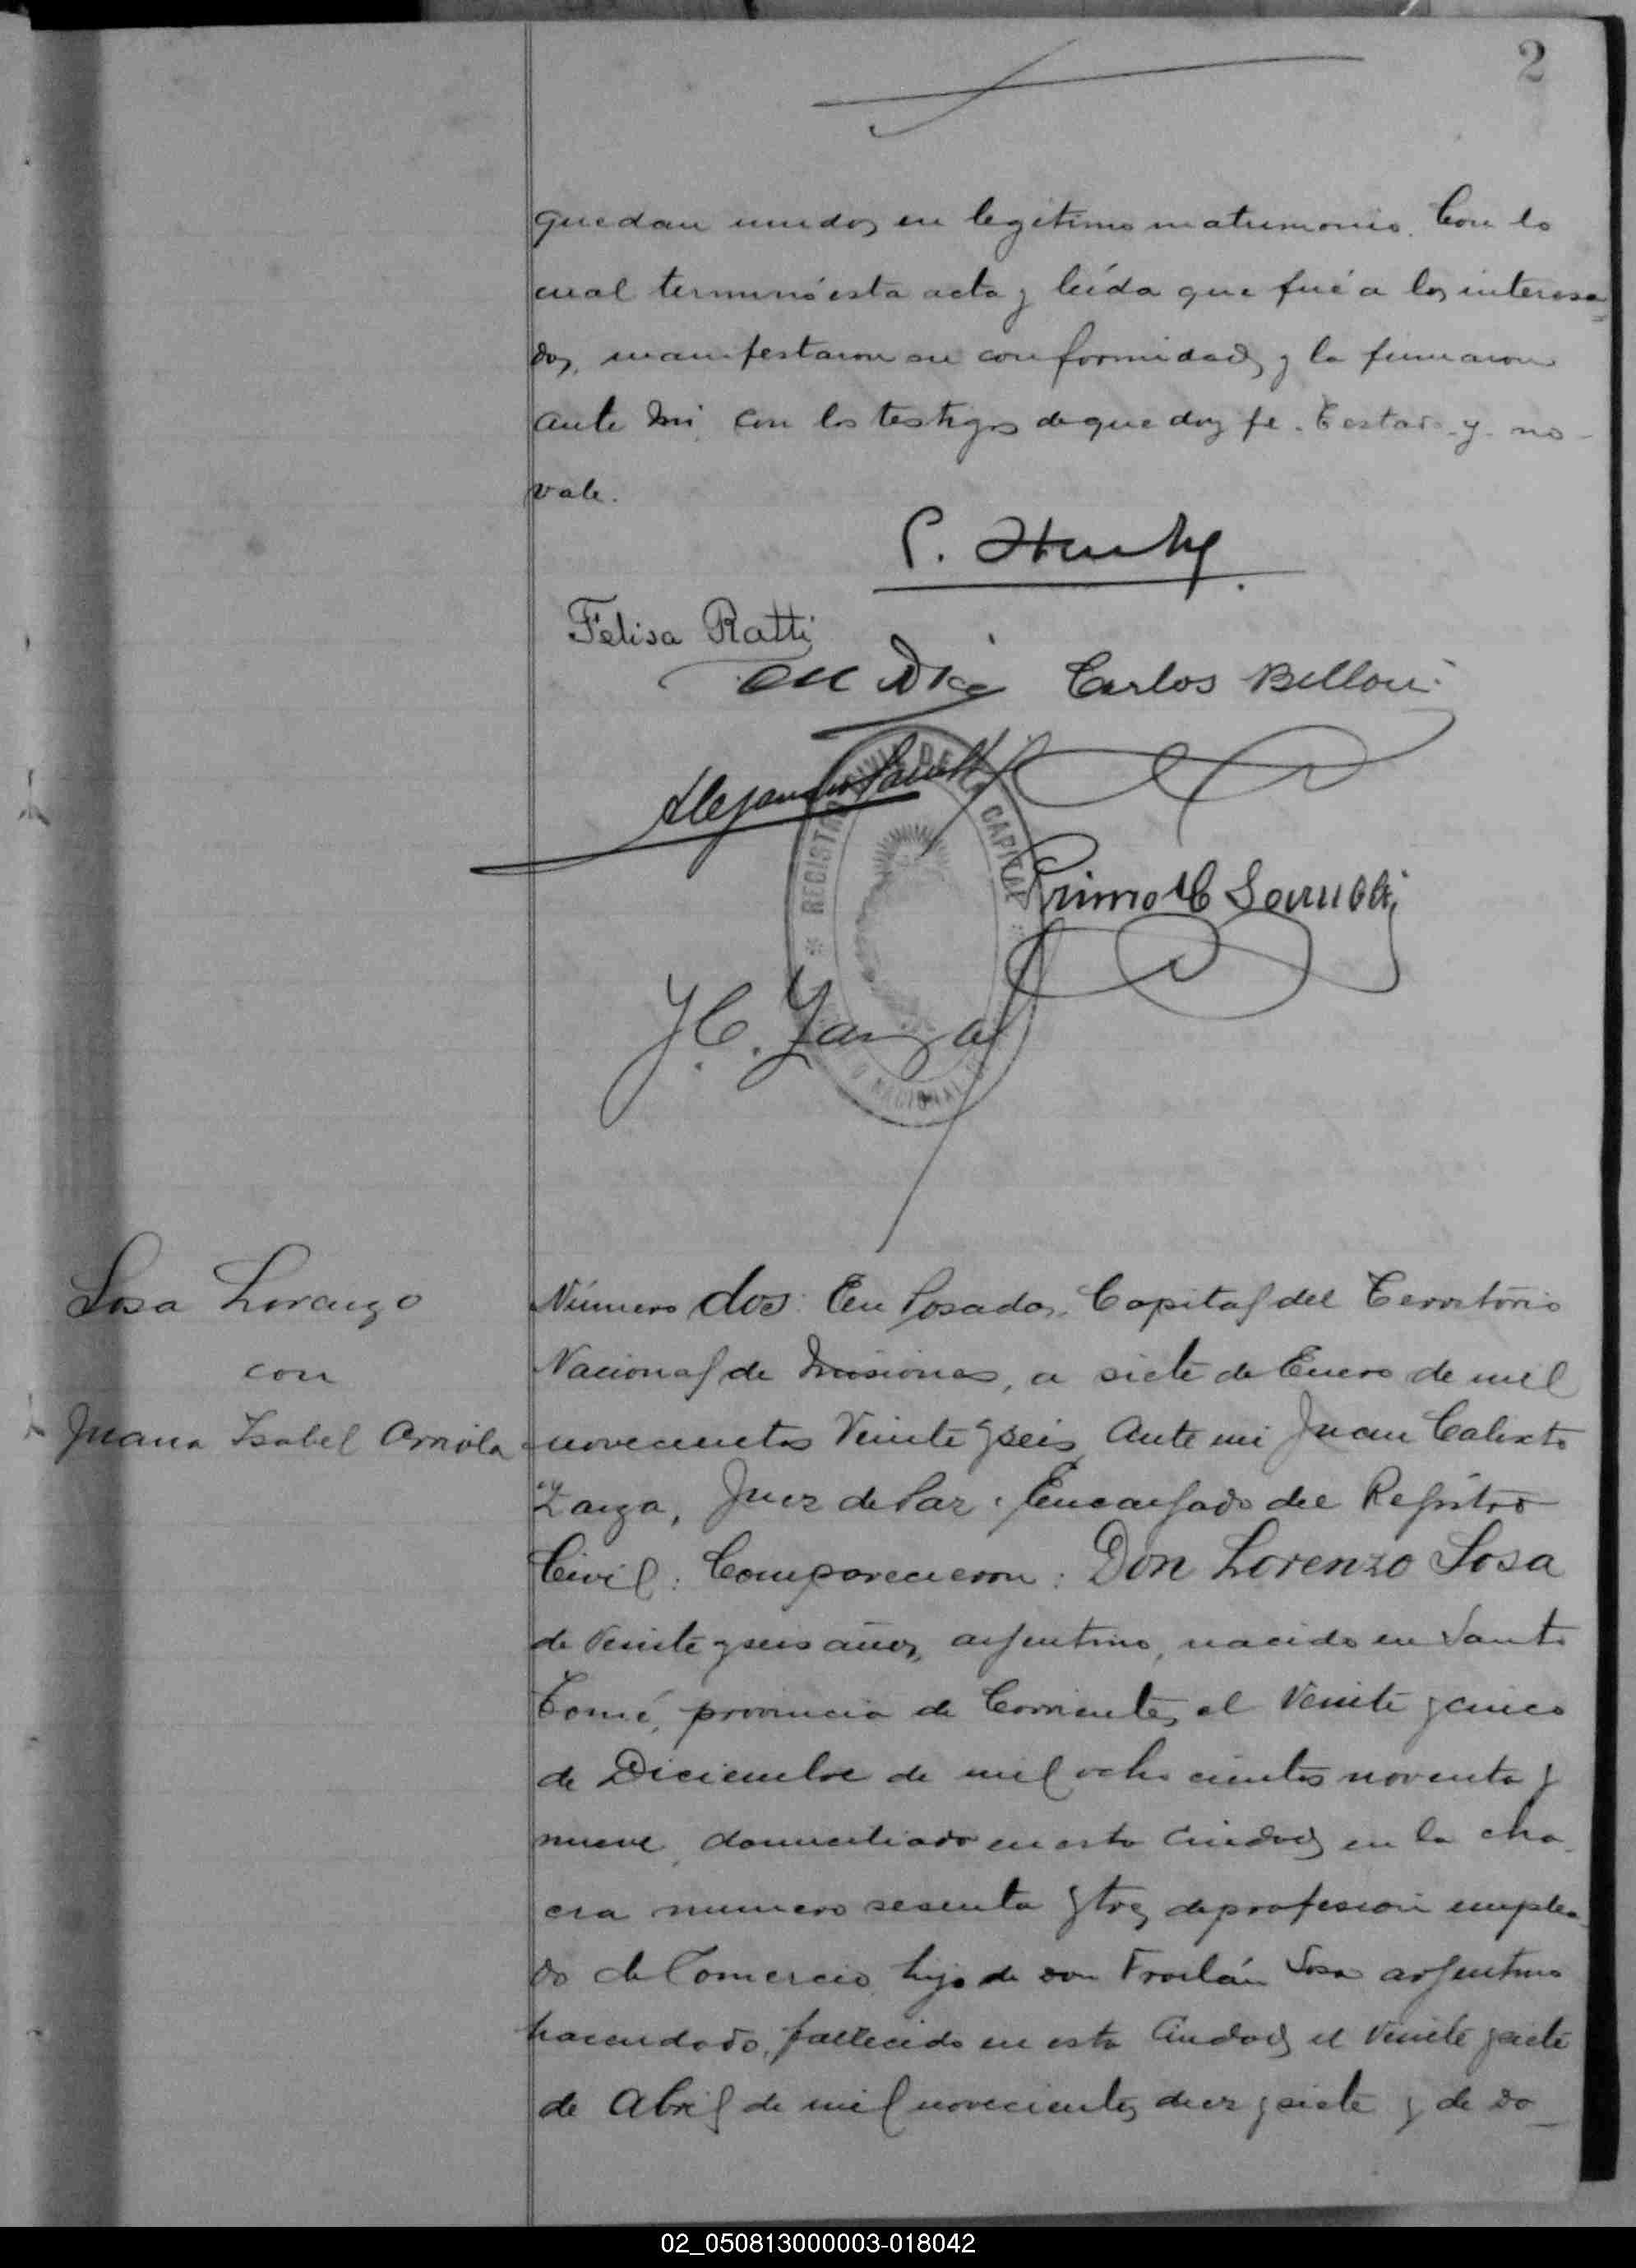 2
quedan unidos en legítimo matrimonio. Con lo
cual terminó esta acta y leída que fué a los interesa
dos, manifestaron su conformidad y la firmaron
ante mi con los testigos de que doy fe. Testado - y - no -
vale.
Felisa Ratti
Carlos Belloni
REGISTRO CIVIL DE LA CAPITAL
Alejandro
Primo
NACIONAL
J. C. Zarza
Sosa Lorenzo
con
Juana Isabel Arriola
Número dos: En Posadas, Capital del Territorio
Nacional de Misiones, a siete de Enero de mil
novecientos veinte y seis, Ante mi Juan Calixto
Zarza, Juez de Paz, Encargado del Registro
Civil: Comparecieron: Don Lorenzo Sosa
de veinte y seis años, argentino, nacido en Santo
Tomé, provincia de Corrientes, el veinte y cinco
de Diciembre de mil ochocientos noventa y
nueve, domiciliado en esta Ciudad en la cha
cra numero sesenta y tres, de profesión emplea
do de Comercio, hijo de don Froilán Sosa argentino
hacendado, fallecido en esta Ciudad el veinte y siete
de Abril de mil novecientos diez y siete y de do_
02_050813000003-018042